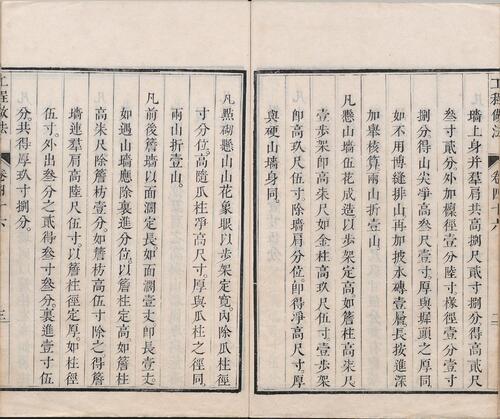 工程做法 卷四十六 二
墻上身并羣肩共高捌尺貳寸捌分得高貳尺
叁寸貳分外加檁徑壹分陸寸椽徑壹分壹寸
捌分得山尖淨高叁尺壹寸厚與墀頭之厚同
如不用博縫排山再加披水磚壹層長按進深
加舉核算兩山折壹山
凡懸山墻伍花成造以步架定高如簷柱高柒尺
壹步架即高柒尺如金柱高玖尺伍寸壹步架
即高玖尺伍寸除墻肩分位即得凈高尺寸厚
與硬山墻身同
凡點砌懸山山花象眼以步架定寬內除瓜柱徑
寸分位高隨瓜柱凈高尺寸厚與瓜柱之徑同
兩山折壹山
凡前後簷墻以面濶定長如面濶壹丈即長壹丈
如遇山墻應除裏進分位以簷柱定高如簷柱
高柒尺除簷枋壹分如簷枋高伍寸除之得簷
墻連羣肩高陸尺伍寸以簷柱徑定厚如柱徑
伍寸外出叁分之貳得叁寸叁分裏進壹寸伍
分共得厚玖寸捌分
工程做法 卷四十六 三